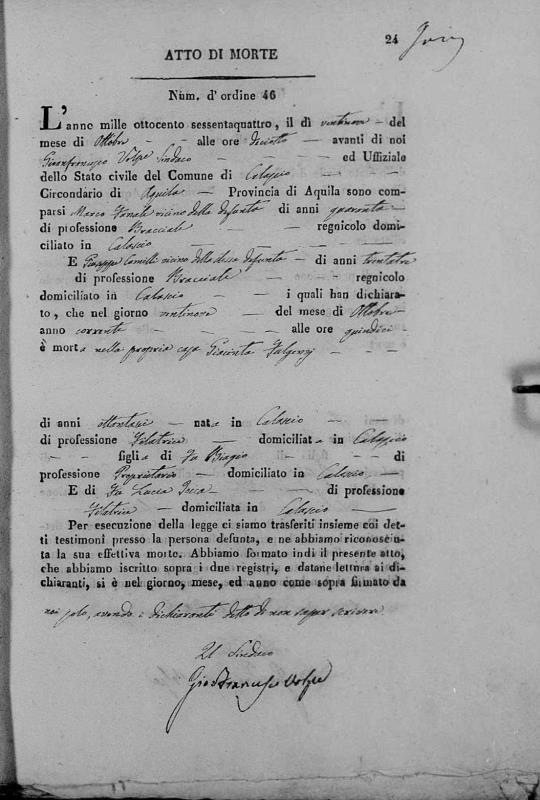 24
ATTO DI MORTE
Núm. d'ordine 46
L'anno mille ottocento sessentaquattro, il dì ventinove - del
mese di Ottobre - - alle ore diciotto - avanti di noi
Gianfrancesco Volpe Sindaco - - - ed Uffiziale
dello Stato civile del Comune di Calascio - - -
Circondario di Aquila - Provincia di Aquila sono com-
parsi Marco vicino della defunta di anni quaranta -
di professione Bracciale - regnicolo domi-
ciliato in Calascio - - - -
E Giuseppe vicino della stessa defunta - di anni trentatre
di professione Bracciale - regnicolo
domiciliato in Calascio - - i quali han dichiara-
to, che nel giorno ventinove - del mese di Ottobre -
anno corrente - - - - alle ore quindici -
è morta nella propria casa Giacinta Fulgenzj - - -
di anni ottantasei - nata in Calascio - -
di professione Filatrice - domiciliata in Calascio
- - figlia di fu Biagio - - - di
professione Proprietario - domiciliato in Calascio -
E di fu Lucia - - - di professione
Filatrice - domiciliata in Calascio -
Per esecuzione della legge ci siamo trasferiti insieme coi det-
ti testimoni presso la persona defunta, e ne abbiamo riconosciu-
ta la sua effettiva morte. Abbiamo formato indi il presente atto,
che abbiamo iscritto sopra i due registri, e datane lettura ai di-
chiaranti, si è nel giorno, mese, ed anno come sopra firmato da
noi solo, avendo i dichiaranti detto di non saper scrivere.
Il Sindaco
Gio: Francesco Volpe